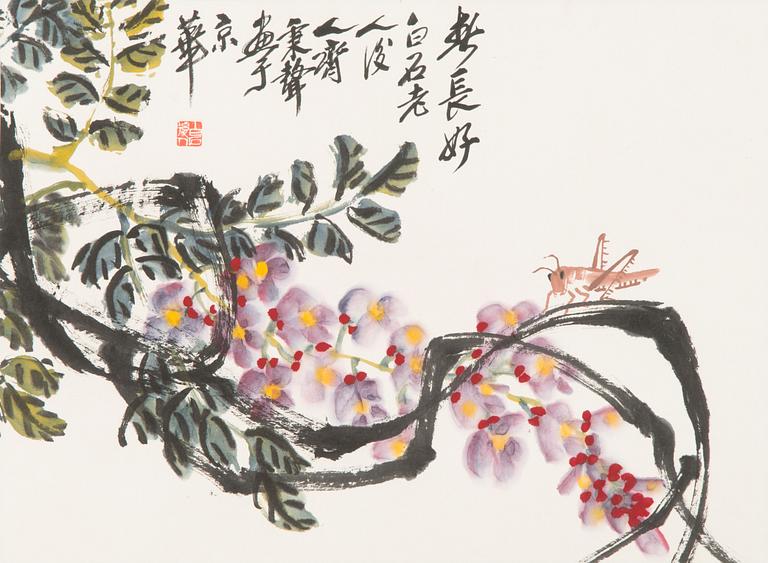 春長好
白石老
人後
人齊
秉聲
畫于
京
華